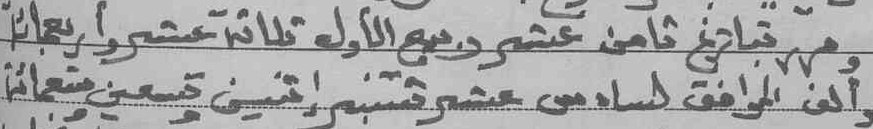 وحرر بتاريخ ثامن عشر ربيع الأول ثلاثة عشر وأربعمائة
وألف الموافق لسادس عشر شتنبر إثنين وتسعين وتسعمائة